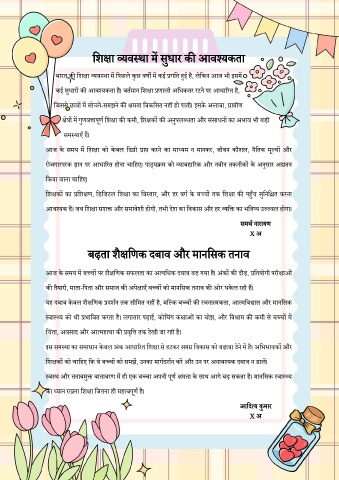 शिक्षा व्यवस्था में सुधार की आवश्यकता
भारत की शिक्षा व्यवस्था में पिछले कुछ वर्षों में कई प्रगति हुई है, लेकिन आज भी इसमें
कई सुधारों की आवश्यकता है। वर्तमान शिक्षा प्रणाली अधिकतर रटने पर आधारित है,
जिससे छात्रों में सोचने-समझने की क्षमता विकसित नहीं हो पाती। इसके अलावा, ग्रामीण
क्षेत्रों में गुणवत्तापूर्ण शिक्षा की कमी, शिक्षकों की अनुपलब्धता और संसाधनों का अभाव भी बड़ी
समस्याएँ हैं।
आज के समय में शिक्षा को केवल डिग्री प्राप्त करने का माध्यम न मानकर, जीवन कौशल, नैतिक मूल्यों और
रोजगारपरक ज्ञान पर आधारित होना चाहिए। पाठ्यक्रम को व्यावहारिक और नवीन तकनीकों के अनुसार अद्यतन
किया जाना चाहिए।
शिक्षकों का प्रशिक्षण, डिजिटल शिक्षा का विस्तार, और हर वर्ग के बच्चों तक शिक्षा की पहुँच सुनिश्चित करना
आवश्यक है। जब शिक्षा सशक्त और समावेशी होगी, तभी देश का विकास और हर व्यक्ति का भविष्य उज्ज्वल होगा।
समर्थ नारायण
X अ
बढ़ता शैक्षणिक दबाव और मानसिक तनाव
आज के समय में बच्चों पर शैक्षणिक सफलता का अत्यधिक दबाव बढ़ गया है। अंकों की दौड़, प्रतियोगी परीक्षाओं
की तैयारी, माता-पिता और समाज की अपेक्षाएँ बच्चों को मानसिक तनाव की ओर धकेल रही हैं।
यह दबाव केवल शैक्षणिक प्रदर्शन तक सीमित नहीं है, बल्कि बच्चों की रचनात्मकता, आत्मविश्वास और मानसिक
स्वास्थ्य को भी प्रभावित करता है। लगातार पढ़ाई, कोचिंग कक्षाओं का बोझ, और विश्राम की कमी से बच्चों में
चिंता, अवसाद और आत्महत्या की प्रवृत्ति तक देखी जा रही है।
इस समस्या का समाधान केवल अंक आधारित शिक्षा से हटकर समग्र विकास को बढ़ावा देने में है। अभिभावकों और
शिक्षकों को चाहिए कि वे बच्चों को समझें, उनका मार्गदर्शन करें और उन पर अनावश्यक दबाव न डालें।
स्वस्थ और तनावमुक्त वातावरण में ही एक बच्चा अपनी पूर्ण क्षमता के साथ आगे बढ़ सकता है। मानसिक स्वास्थ्य
का ध्यान रखना शिक्षा जितना ही महत्वपूर्ण है।
आदित्य कुमार
X अ